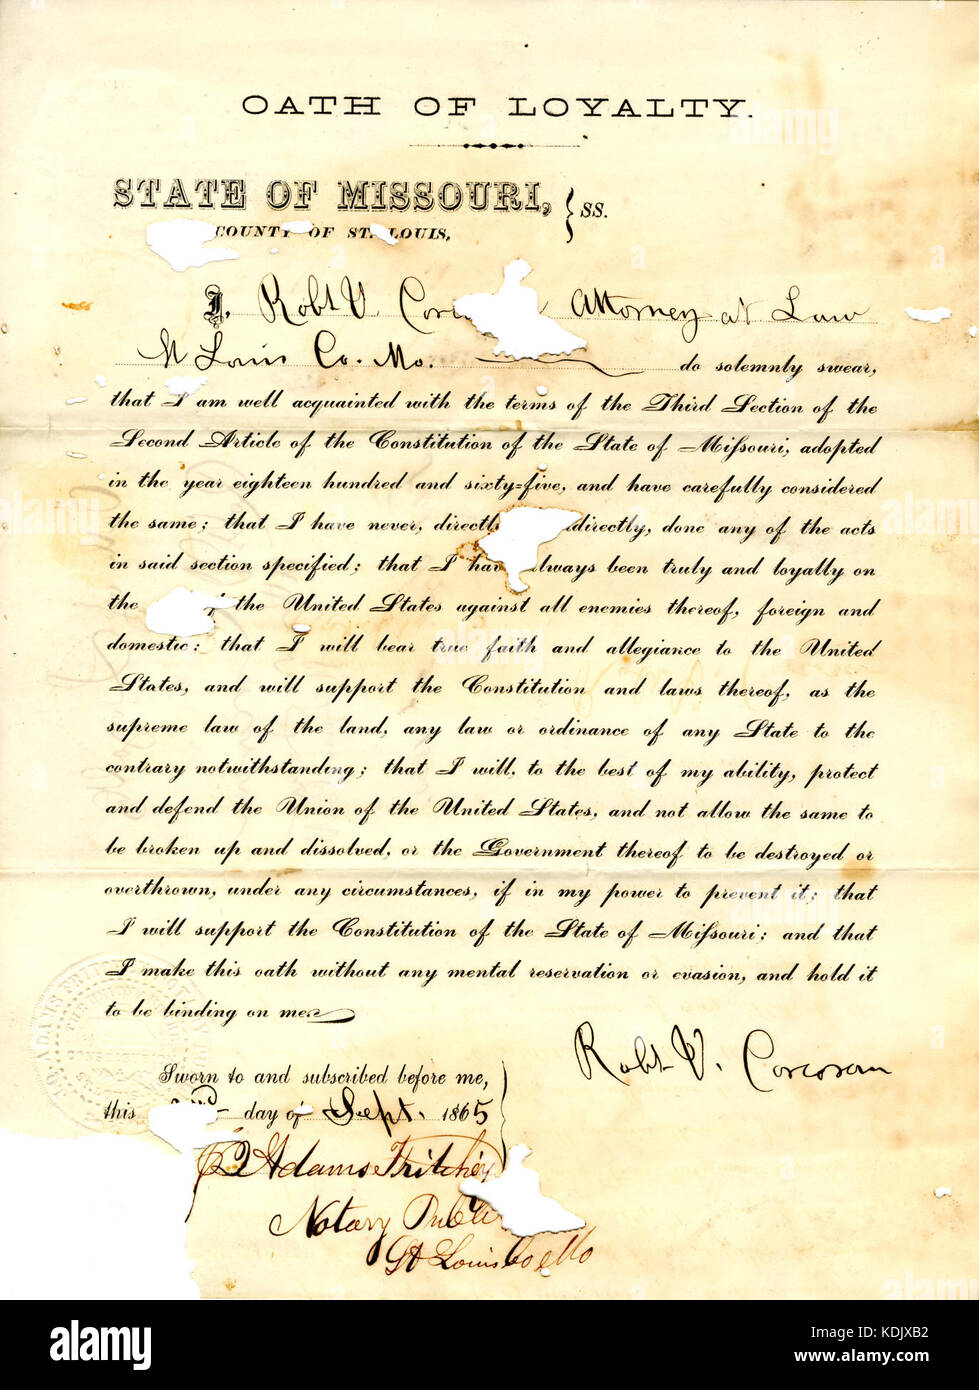 OATH OF LOYALTY.
STATE OF MISSOURI, } SS.
COUNTY OF ST. LOUIS,
I, Robt V. Attorney at Law
St Louis Co. Mo. do solemnly swear,
that I am well acquainted with the terms of the Third Section of the
Second Article of the Constitution of the State of Missouri, adopted
in the year eighteen hundred and sixty-five, and have carefully considered
the same; that I have never, directly directly, done any of the acts
in said section specified; that I have always been truly and loyally on
the of the United States against all enemies thereof, foreign and
domestic; that I will bear true faith and allegiance to the United
States, and will support the Constitution and laws thereof, as the
supreme law of the land, any law or ordinance of any State to the
contrary notwithstanding; that I will, to the best of my ability, protect
and defend the Union of the United States, and not allow the same to
be broken up and dissolved, or the Government thereof to be destroyed or
overthrown, under any circumstances, if in my power to prevent it; that
I will support the Constitution of the State of Missouri; and that
I make this oath without any mental reservation or evasion, and hold it
to be binding on me.
Robt V. Corcoran
Sworn to and subscribed before me,
this day of Sept. 1865
Adams Fritchey
Notary Public
St Louis Co Mo
alamy
Image ID: KDJXB2
www.alamy.com